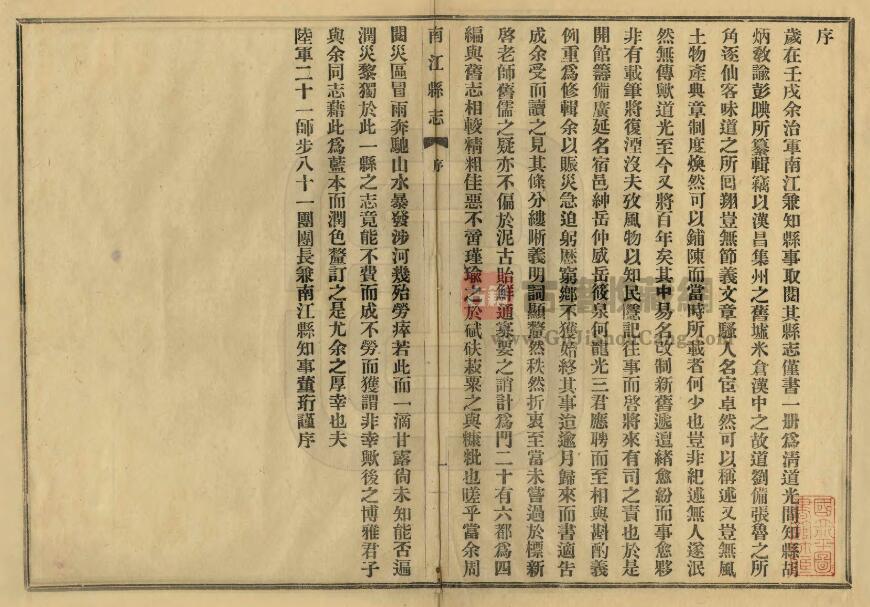 序
歲在壬戌余治軍南江兼知縣事取閱其縣志僅書一册爲清道光間知縣胡
炳教諭彭㬎所纂輯竊以漢昌集州之舊墟米倉漢中之故道劉備張魯之所
角逐仙客味道之所回翔豈無節義文章騷人名宦卓然可以稱述又豈無風
土物產典章制度煥然可以鋪陳而當時所載者何少也豈非紀述無人遂泯
然無傳歟道光至今又將百年矣其中易名改制新舊遞嬗緒愈紛而事愈夥
非有載筆將復湮沒夫攷風物以知民隱記往事而啓將來有司之責也於是
開館籌備廣延名宿邑紳岳仲威岳筱泉何龍光三君應聘而至相與斟酌義
例重爲修輯余以賑災急迫躬歷窮鄉不獲始終其事迨逾月歸來而書適告
成余受而讀之見其條分縷晰義明詞顯釐然秩然折衷至當未嘗過於標新
啓老師舊儒之疑亦不偏於泥古貽鮮通寡要之誚計爲門二十有六都爲四
編與舊志相較精粗佳惡不啻瑾瑜之於碔砆菽粟之與糠粃也嗟乎當余周
南江縣志
序
閱災區冒雨奔馳山水暴發涉河幾殆勞瘁若此而一滴甘露尙未知能否遍
潤災黎獨於此一縣之志竟能不費而成不勞而獲謂非幸歟後之博雅君子
與余同志藉此爲藍本而潤色釐訂之是尤余之厚幸也夫
陸軍二十一師步八十一團團長兼南江縣知事董珩謹序